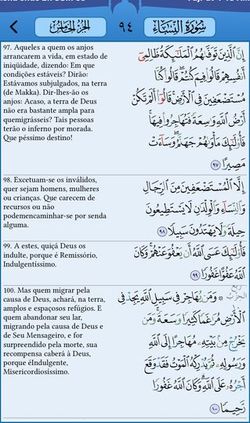 سُورَةُ النِّسَاءِ
٩٤
الجزء الخامس
97. Aqueles a quem os anjos
arrancarem a vida, em estado de
iniqüidade, dizendo: Em que
condições estáveis? Dirão:
Estávamos subjugados, na terra
(de Makka). Dir-lhes-ão os
anjos: Acaso, a terra de Deus
não era bastante ampla para
quemigrásseis? Tais pessoas
terão o inferno por morada.
Que péssimo destino!
إِنَّ ٱلَّذِينَ تَوَفَّىٰهُمُ ٱلْمَلَٰٓئِكَةُ ظَالِمِىٓ
أَنفُسِهِمْ قَالُوا۟ فِيمَ كُنتُمْ ۖ قَالُوا۟ كُنَّا
مُسْتَضْعَفِينَ فِى ٱلْأَرْضِ ۚ قَالُوٓا۟ أَلَمْ تَكُنْ
أَرْضُ ٱللَّهِ وَٰسِعَةً فَتُهَاجِرُوا۟ فِيهَا ۚ
فَأُو۟لَٰٓئِكَ مَأْوَىٰهُمْ جَهَنَّمُ ۖ وَسَآءَتْ
مَصِيرًا ٩٧
98. Excetuam-se os inválidos,
quer sejam homens, mulheres
ou crianças. Que carecem de
recursos ou não
podemencaminhar-se por senda
alguma.
إِلَّا ٱلْمُسْتَضْعَفِينَ مِنَ ٱلرِّجَالِ
وَٱلنِّسَآءِ وَٱلْوِلْدَٰنِ لَا يَسْتَطِيعُونَ
حِيلَةً وَلَا يَهْتَدُونَ سَبِيلًا ٩٨
99. A estes, quiçá Deus os
indulte, porque é Remissório,
Indulgentíssimo.
فَأُو۟لَٰٓئِكَ عَسَى ٱللَّهُ أَن يَعْفُوَ عَنْهُمْ ۚ وَكَانَ
ٱللَّهُ عَفُوًّا غَفُورًا ٩٩
100. Mas quem migrar pela
causa de Deus, achará, na terra,
amplos e espaçosos refúgios. E
quem abandonar seu lar,
migrando pela causa de Deus e
de Seu Mensageiro, e for
surpreendido pela morte, sua
recompensa caberá à Deus,
porque éIndulgente,
Misericordiosíssimo.
۞ وَمَن يُهَاجِرْ فِى سَبِيلِ ٱللَّهِ يَجِدْ فِى
ٱلْأَرْضِ مُرَٰغَمًا كَثِيرًا وَسَعَةً ۚ وَمَن
يَخْرُجْ مِنۢ بَيْتِهِۦ مُهَاجِرًا إِلَى ٱللَّهِ
وَرَسُولِهِۦ ثُمَّ يُدْرِكْهُ ٱلْمَوْتُ فَقَدْ وَقَعَ
أَجْرُهُۥ عَلَى ٱللَّهِ ۗ وَكَانَ ٱللَّهُ غَفُورًا
رَّحِيمًا ١٠٠